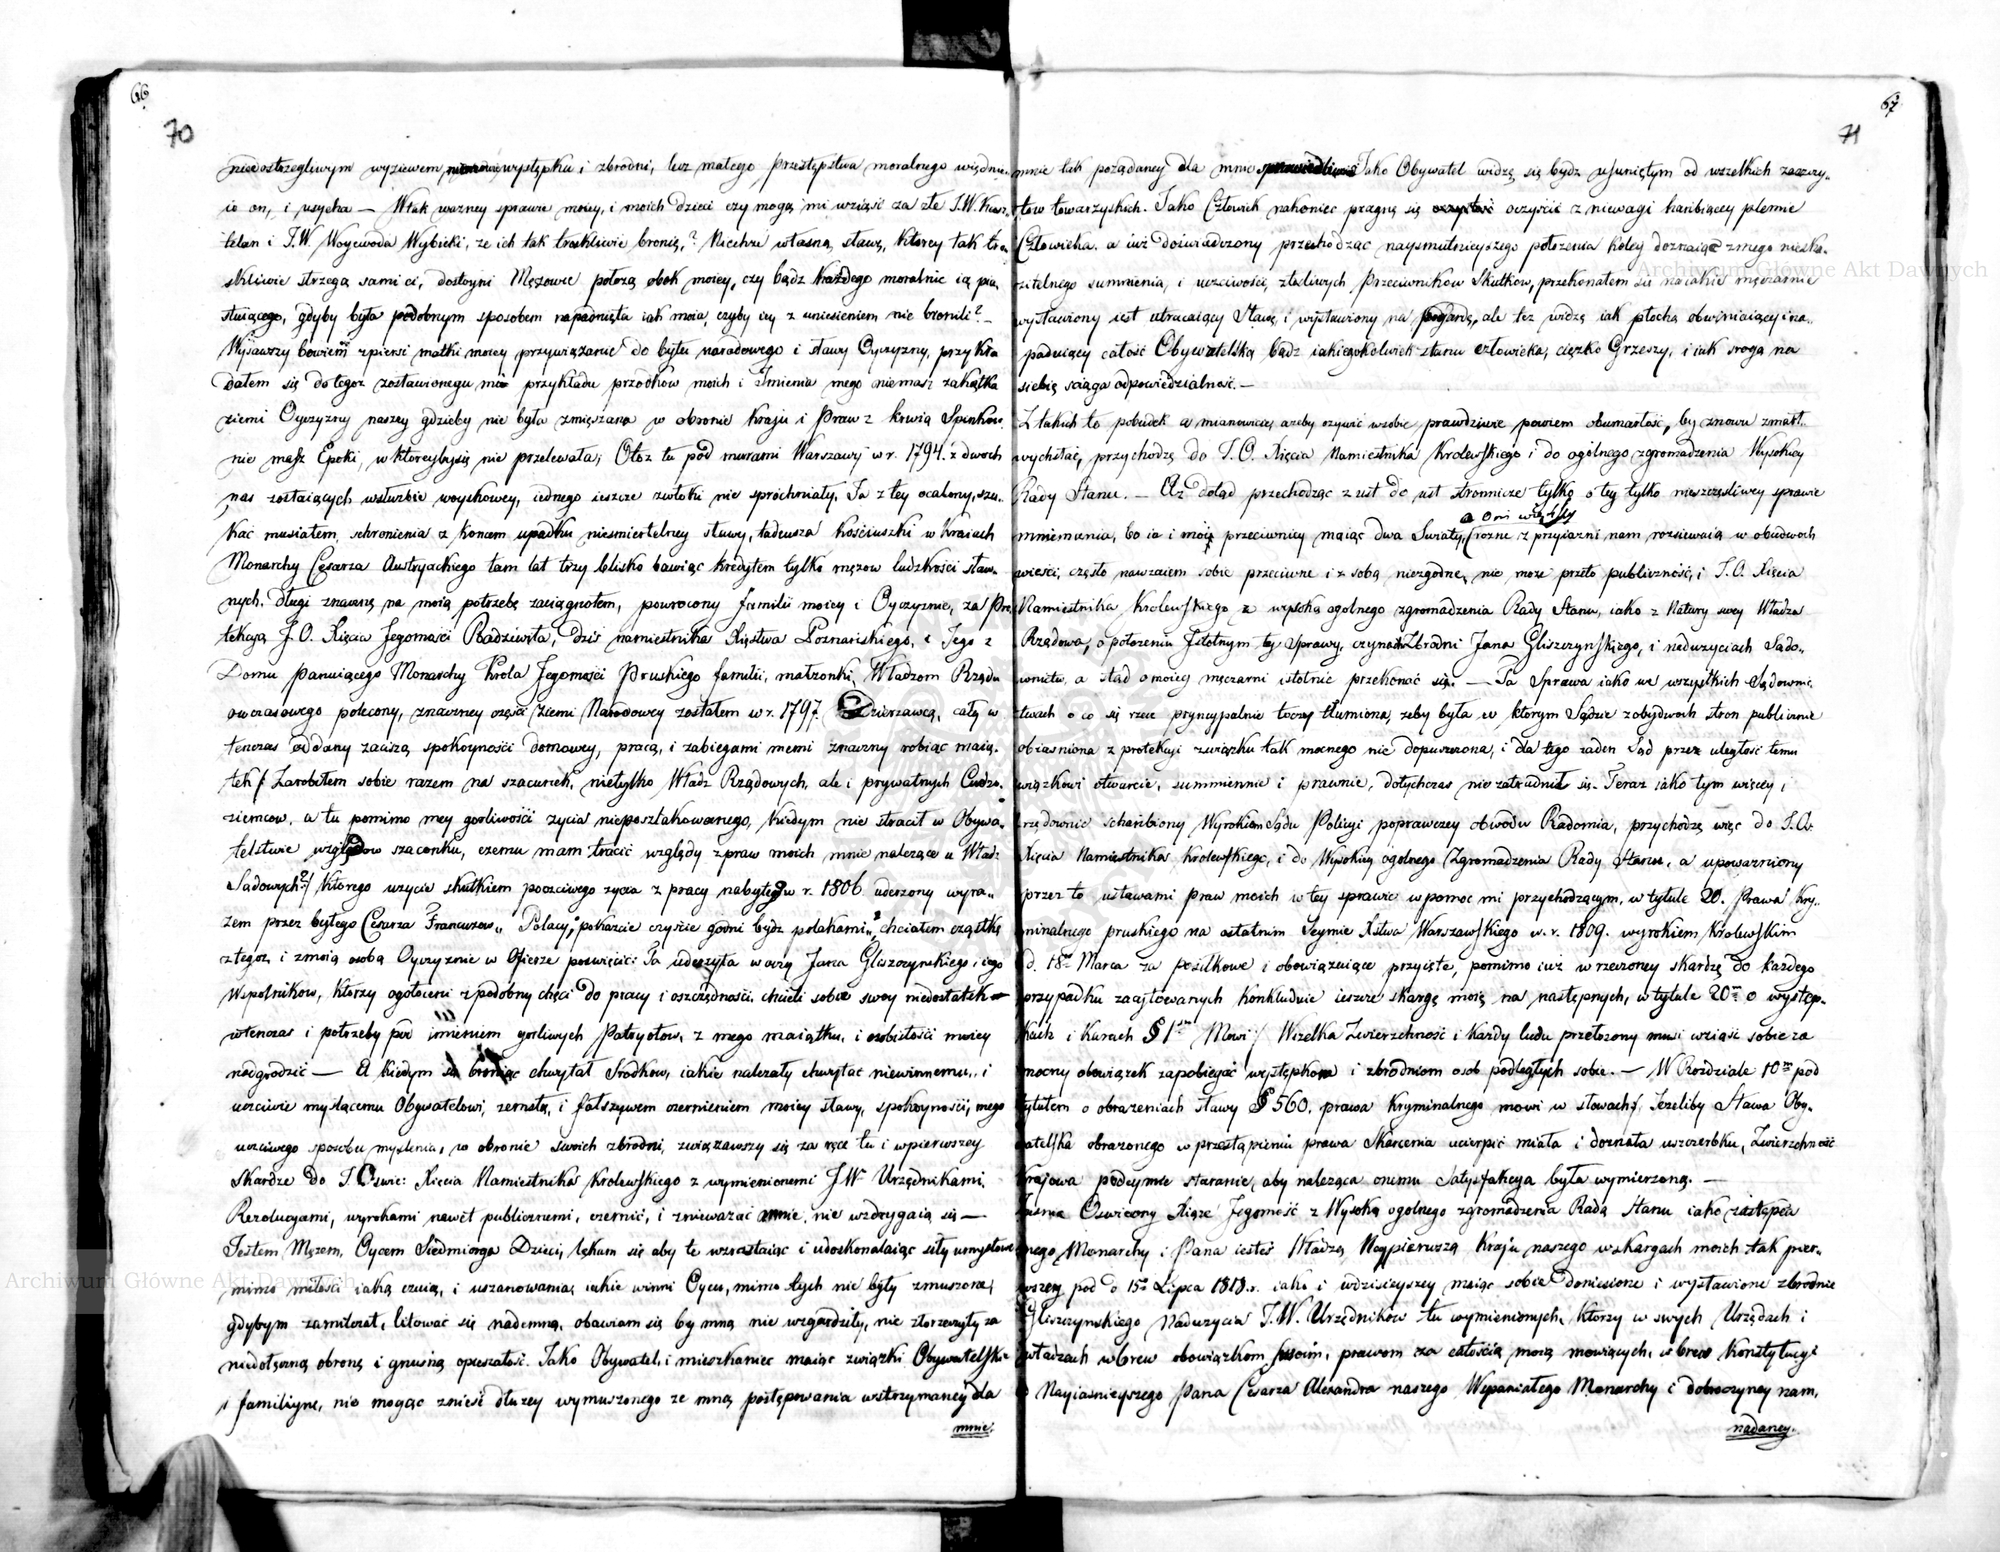 66
70
niedostrzegłwym wyziewem występku i zbrodni, lecz małego przestępstwa moralnego więdnie
io on, i usycha — Wtak wazney sprawie moiey, i moich dzieci czy mogą mi wziąść za złe J.W. Kasz„
telan i J.W. Woyewoda Wybicki, ze ich tak troskliwie bronię,? Niechze własną sławę, którey tak tro„
skliwie strzegą sami ci, dostoyni Męzowie połozą obok moiey, czy bądz kazdego moralnie ią pia„
stuiącego, gdyby była podobnym sposobem napadnięta iak moia, czyby iey z uniesieniem nie bronili? —
Wyssawszy bowiem z piersi matki moiey przywiązanie do bytu narodowego i sławy Oyczyzny, przykła
dałem się do tegoz zostawionego mi przykładu przodków moich i Imienia mego niemasz zakątka
ziemi Oyczyzny naszey gdzieby nie była zmięszana w obronie Kraju i Praw z krwią
nie masz Epoki, w ktoreybysię nie przelewała; Otoz tu pod murami Warszawy w r. 1794. z dwoch
nas zostaiących wsłuzbie woyskowey, iednego ieszcze zwłoki nie spróchniały. Ja z tey ocalony, szu„
kać musiałem, schronienia z koncem upadku niesmiertelney sławy, tadeusza Kościuszki w Kraiach
Monarchy Cesarza Austryackiego tam lat trzy blisko bawiąc kredytem tylko męzow ludzkości sław„
nych. długi znaczną na moią potrzebę zaciągnołem, powrocony familii moiey i Oyczyznie, za Pro„
tekcyą J.O. Xięcia Jegomości Radziwiła, dziś namiestnika Xięstwa Poznańskiego, i Jego z
Domu panuiącego Monarchy Krola Jegomości Pruskiego familii, małzonki, Władzom Rządu
owczasowego polecony, znaczney części Ziemi Narodowey zostałem w r. 1797. Dzierzawcą, cały w
tenczas oddany zaciszą spokoyności domowey, pracą, i zabiegami memi znaczny robiąc maią„
tek / Zarobiłem sobie razem na szacunek, nietylko Władz Rządowych, ale i prywatnych Cudzo„
ziemcow, a tu pomimo mey gorliwości zycia nieposzlakowanego, kiedym nie stracił w Obywa„
telstwie względow szacunku, czemu mam tracić względy z praw moich mnie nalezące u Władz
Sądowych? / Którego uzycie skutkiem poczciwego zycia z pracy nabytego w r. 1806. uderzony wyra„
zem przez byłego Cesarza Francuzow „Polacy, pokazcie czyście godni bydz polakami„ chciałem cząstkę
z tegoz i zmoią osobą Oyczyznie w Ofierze poswięcić: Ta uderzyła w oczy Jana Gliszczynskiego i iego
Wspolnikow, ktorzy ogołoceni z podobny chęci do pracy i oszczędności, chcieli sobie swoy niedostatek
wtenczas i potrzeby pod imieniem gorliwych Patryotow, z mego maiątku, i osobistości moiey
nadgrodzić — A kiedym broniąc chwytał Srodkow, iakie nalezały chwytać niewinnemu, i
uczciwie myslącemu Obywatelowi, zemstą, i fałszywem czernieniem moiey sławy, spokoyności, mego
uczciwego sposobu myslenia, w obronie swoich zbrodni, związawszy się za ręce tu i wpierwszey
Skardze do J. Oswie: Xięcia Namiestnika Krolewskiego z wymienionemi J.W. Urzędnikami,
Rezolucyami, wyrokami nawet publicznemi, czernić, i zniewazać mnie, nie wzdrygaią się —
Jestem Męzem, Oycem Siedmiorga Dzieci, lękam się aby te wzrastaiąc i udoskonalaiąc siły umysłowe
mimo miłości iaką czuią, i uszanowania, iakie winni Oycu, mimo tych nie były zmuszone,
gdybym zamilczał, litować się nademną, obawiam się by mną nie wzgardziły, nie złorzeczyły za
niedołęzną obronę i gnusną opieszałość. Jako Obywatel, i mieszkaniec maiąc związki Obywatelskie
i familiyne, nie mogąc znieść dłuzey wymuszonego ze mną postępowania wstrzymaney dla
mnie.
67
71
mnie tak pożądaney dla mnie Jako Obywatel widzę się bydz usuniętym od wszelkich zaszczy„
tow towarzyskich. Jako Człowiek nakoniec pragnę się oczyścić z niewagi hanbiącey plemie
Człowieka. a iuż doświadczony przechodząc naysmutnieyszego połozenia koley doznaiąc z mego nieska„
zitelnego sumnienia, i uczciwości, złosliwych Przeciwnikow Skutkow, przekonałem się na iakie męczarnie
wystawiony iest utracaiący Sławę i wystawiony na pogardę, ale tez widzę iak płocha obwiniaiący i na„
paduiący całość Obywatelską bądz iakiegokolwiek stanu człowieka, cięzko Grzeszy, i iak srogą na
siebie ściąga odpowiedzialność. —
Z takich to pobudek a mianowiciey azeby ozywić wsobie prawdziwie powiem obumarłość, by znowu zmart„
wychstać, przychodzę do J.O. Xięcia Namiestnika Krolewskiego i do ogólnego zgromadzenia Wysokiey
Rady Stanu. — Az dotąd przechodząc z ust do ust stronnicze tylko o tey tylko nieszczęśliwey sprawie
a oni więcey
mniemania, bo ia i moi przeciwnicy maiąc dwa Swiaty, (rozne z przyiazni nam rozsiewaią w obudwoch
wieści, często nawzaiem sobie przeciwne i z sobą niezgodne, nie moze przeto publiczność, i J.O. Xięcia
Namiestnika Krolewskiego z wysoką ogolnego zgromadzenia Rady Stanu, iako z Natury swey Władza
Rządowa, o połozeniu Istotnym tey Sprawy, czynach Zbrodni Jana Gliszczynskiego, i naduzyciach Sądo„
wnictw, a stąd o moiey męczarni istotnie przekonać się. — Ta Sprawa iako we wszystkich Sądowni„
ctwach o co się rzecz pryncypalnie toczy tłumiona, zeby była w którym Sądzie z obydwoch stron publicznie
obiasniona z protekcyi związku tak mocnego nie dopuszczona, i dla tego zaden Sąd przez uległość temu
związkowi otwarcie, summiennie i prawnie, dotychczas nie zatrudnił się. Teraz iako tym więcey i
urzędownie schanbiony Wyrokiem Sądu Policyi poprawczey obwodu Radomia, przychodzę więc do J.O.
Xięcia Namiestnika Krolewskiego, i do Wysokiey ogolnego Zgromadzenia Rady Stanu, a upowazniony
przez to ustawami praw moich w tey sprawie w pomoc mi przychodzącym, w tytule 20. Prawa Kry„
minalnego pruskiego na ostatnim Seymie Xstwa Warszawskiego w r. 1809. wyrokiem Krolewskim
d. 18o Marca za posiłkowe i obowiązuiące przyięte, pomimo iuz w rzeczoney skardze do kazdego
przypadku zacytowanych konkluduie ieszcze skargę moię na następnych, w tytule 20m o występ„
kach i Karach § 1szm Mowi / Wszelka Zwierzchność i Kazdy ludu przełozony musi wziąść sobie za
mocny obowiązek zapobiegać występkom i zbrodniom osob podległych sobie. — W Rozdziale 10m pod
tytułem o obrazeniach sławy § 560. prawa kryminalnego mowi w słowach / Jezeliby Sława Oby„
watelska obrazonego w przestąpieniu prawa Skarcenia ucierpieć miała i doznała uszczerbku, Zwierzchność
krajowa podeymie staranie, aby naleząca onemu Satysfakcya była wymierzoną. —
Jasnie Oswiecony Xiąze Jegomość z Wysoką ogolnego zgromadzenia Radą Stanu iako zastępca
mego Monarchy i Pana iesteś Władzą Naypierwszą Kraju naszego w skargach moich tak pier„
wszey pod d 15o Lipca 1818.r. iako i wdzisieyszey maiąc sobie doniesione i wystawione zbrodnie
Gliszczynskiego Naduzycia J.W. Urzędników tu wymienionych, ktorzy w swych Urzędach i
władzach wbrew obowiązkom swoim, prawom za całością moią mowiących, w brew Konstytucyi
Nayiasnieyszego Pana Cesarza Alexandra naszego Wspaniałego Monarchy i dobroczyncy nam,
nadaney.
Archiwum Główne Akt Dawnych
Archiwum Główne Akt Dawnych